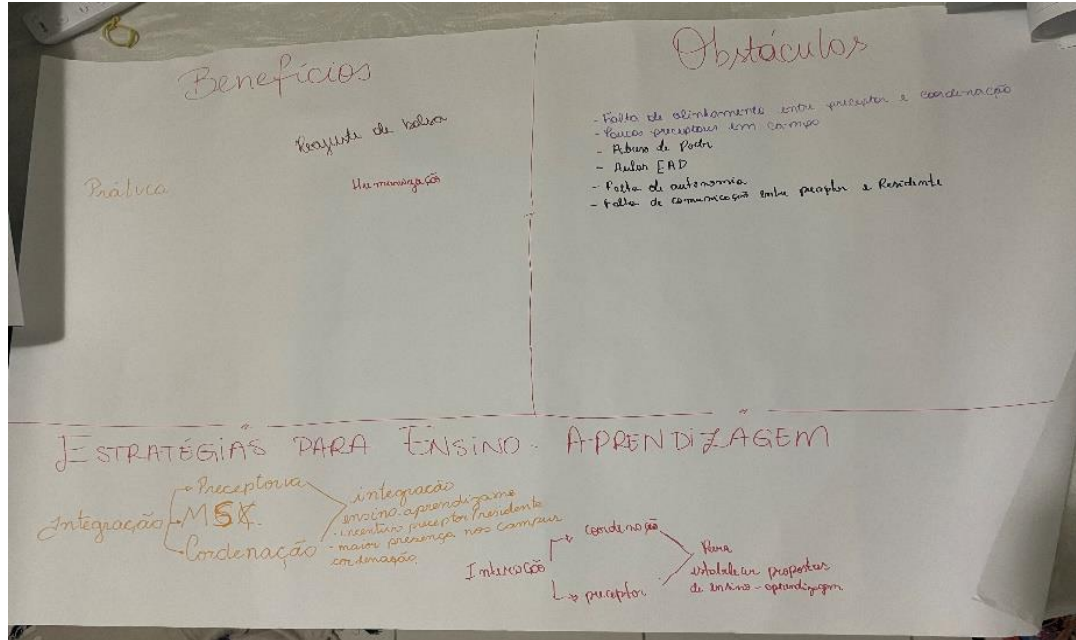 Benefícios
Reajuste de bolsa
Prática
Humanização
Obstáculos
- Falta de alinhamento entre preceptor e coordenação
- Poucos preceptores em campo
- Abuso de Poder
- Aulas EAD
- Falta de autonomia
- Falta de comunicação entre preceptor e Residente
ESTRATÉGIAS PARA ENSINO-APRENDIZAGEM
Integração
Preceptoria
MSK.
Cordenação
integração
ensino-aprendizame
- incentivo preceptor/residente
- maior presença nos campus
cordenação.
Interação
coordenação
preceptor
Para
estabelecer propostas
de ensino-aprendizagem